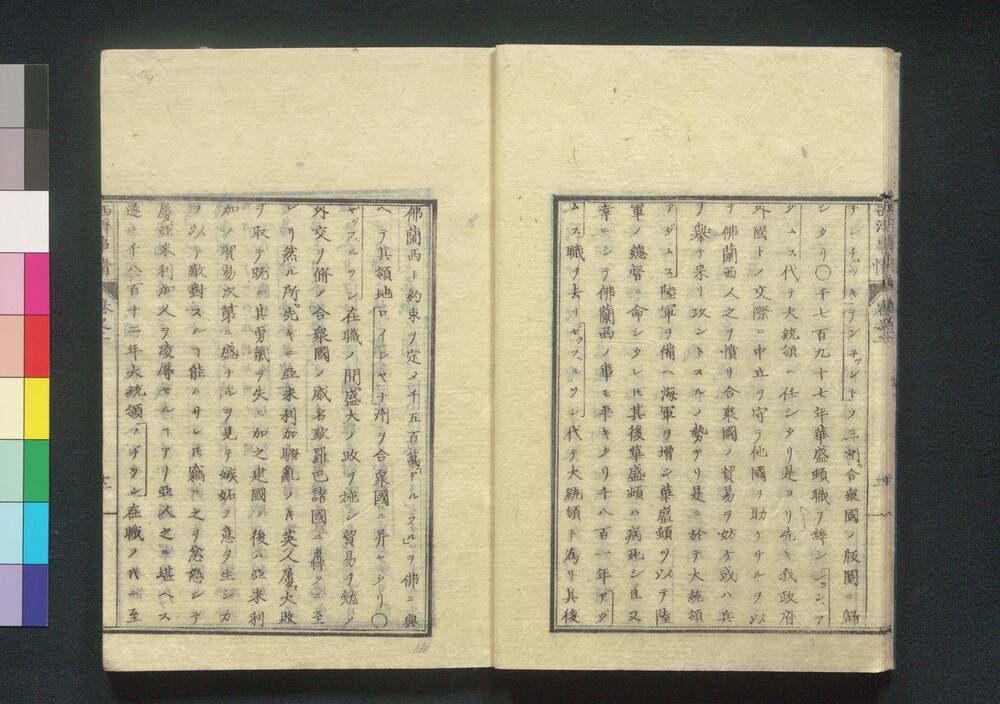 チレチョッキーアンチッシートノ三州合衆國ノ版圖ニ歸
シタリ〇千七百九十七年華盛頓職ヲ辞シジョン、ア
ダムス代テ大統領ニ任シタリ是ヨリ先キ我政府
外國トノ交際ニ中立ヲ守テ他國ヲ助ケサルヲ以
テ佛蘭西人之ヲ憤リ合衆國ノ貿易ヲ妨ケ或ハ兵
ヲ舉テ来リ攻ントスルノ勢アリ是ニ於テ大統領
アダムス陸軍ヲ備ヘ海軍ヲ増シ華盛頓ヲ以テ陸
軍ノ總督ニ命シタレ𪜈其後華盛頓ハ病死シ且又
幸ニシテ佛蘭西ノ事モ平キタリ千八百一年アダ
ムス職ヲ去リゼッフェルソン代テ大統領ト為リ其後
佛蘭西ト約束ヲ定メ千五百萬「ドルラル」ヲ佛ニ與
ヘテ其領地ロイシヤナ州ヲ合衆國ニ并セタリ〇
ゼッフェルソン在職ノ間盛大ノ政ヲ施シ貿易ヲ勉メ
外交ヲ脩メ合衆國ノ威名歐羅巴諸國ニ轟クニ至
レリ然ル所先キニ亞米利加騒亂ノ𪜈英人屢大敗
ヲ取テ既ニ其勇氣ヲ失ヒ加之建國ノ後ハ亞米利
加ノ貿易次第ニ盛ナルヲ見テ嫉妬ノ意ヲ生シカ
ヲ以テ敵對スルヿ能ハサレ𪜈竊ニ之ヲ忿怒シテ
屢亞米利加人ヲ凌辱セルヿアリ亞人之ニ堪ヘス
遂ニ千八百十二年大統領マヂソン在職ノ代ニ至